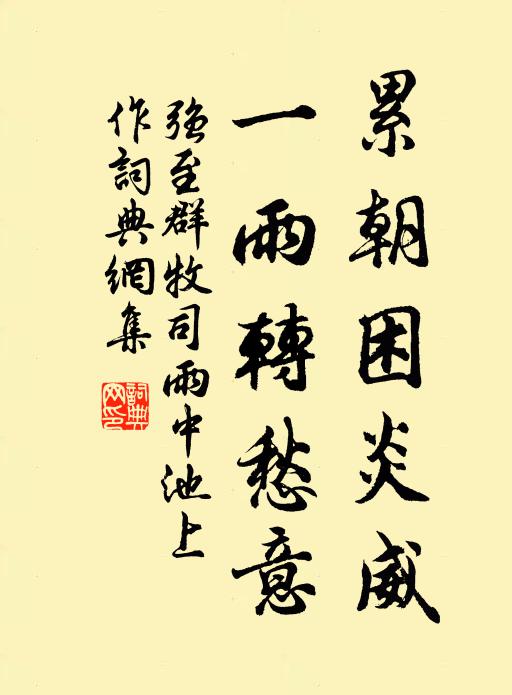 累朝困炎威
一雨轉愁意
強至群牧司雨中池上
作詞典網集
詞典
网印